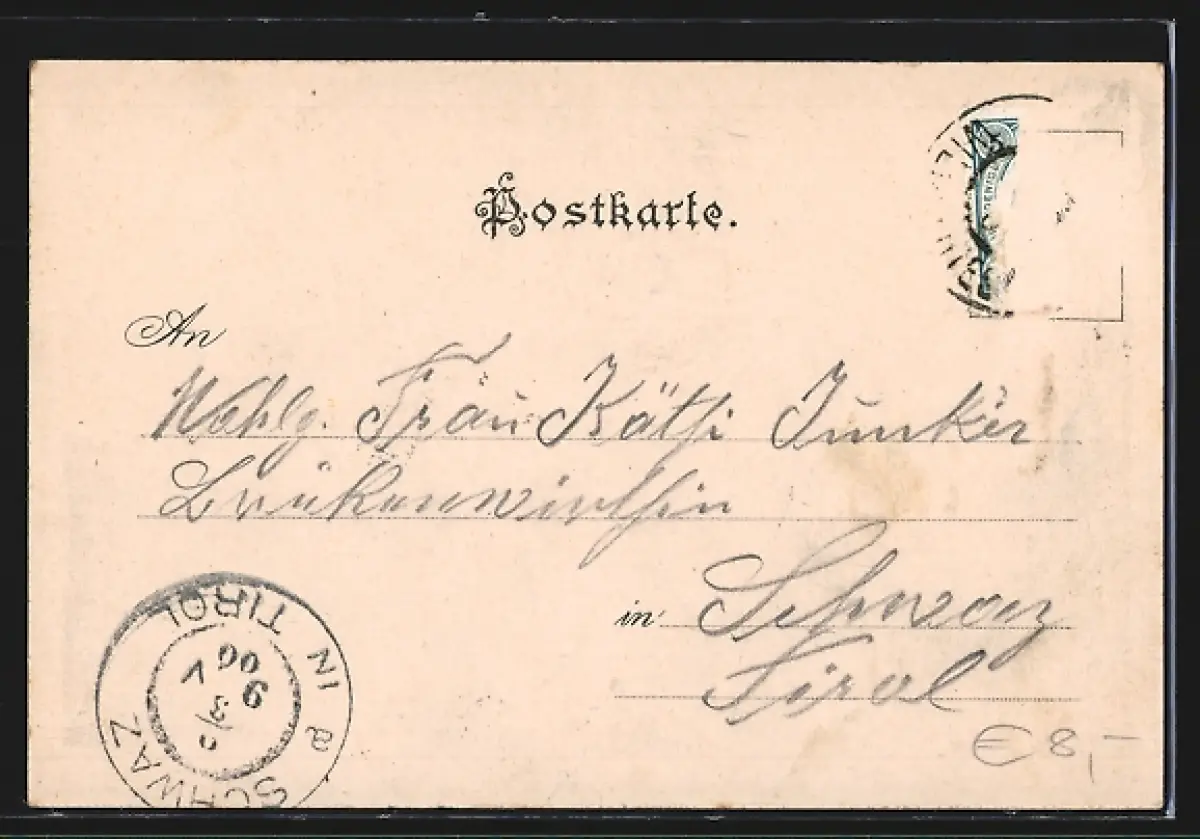 Postkarte.
An
Wohlg. Frau Käthi Junker
Brükenwirthin
in Schwaz
Tirol
SCHWAZ IN TIROL
9 3 00
€ 8,-